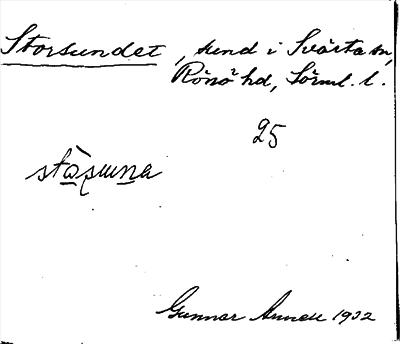 Storsundet, sund i Svärta sn,
Rönö hd, Sörml. l.
25
stòsuna
Gunnar 1932